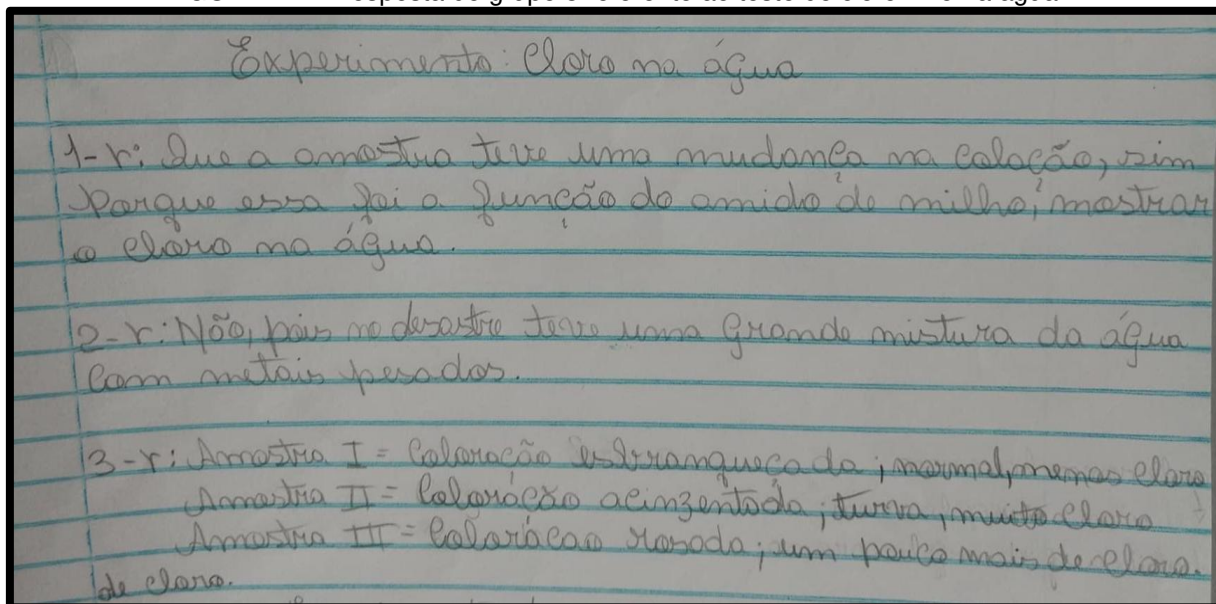 Experimento: Cloro na água
1-r: Que a amostra teve uma mudança na coloção, sim
porque essa foi a função do amido de milho, mostrar
o cloro na água.
2-r: Não, pois no desastre teve uma grande mistura da água
com metais pesados.
3-r: Amostra I = Coloração esbranqueçada; normal, menos cloro
Amostra II = Coloração acinzentada; turva, muito cloro
Amostra III = Coloração rosada; um pouco mais de cloro.
de cloro.